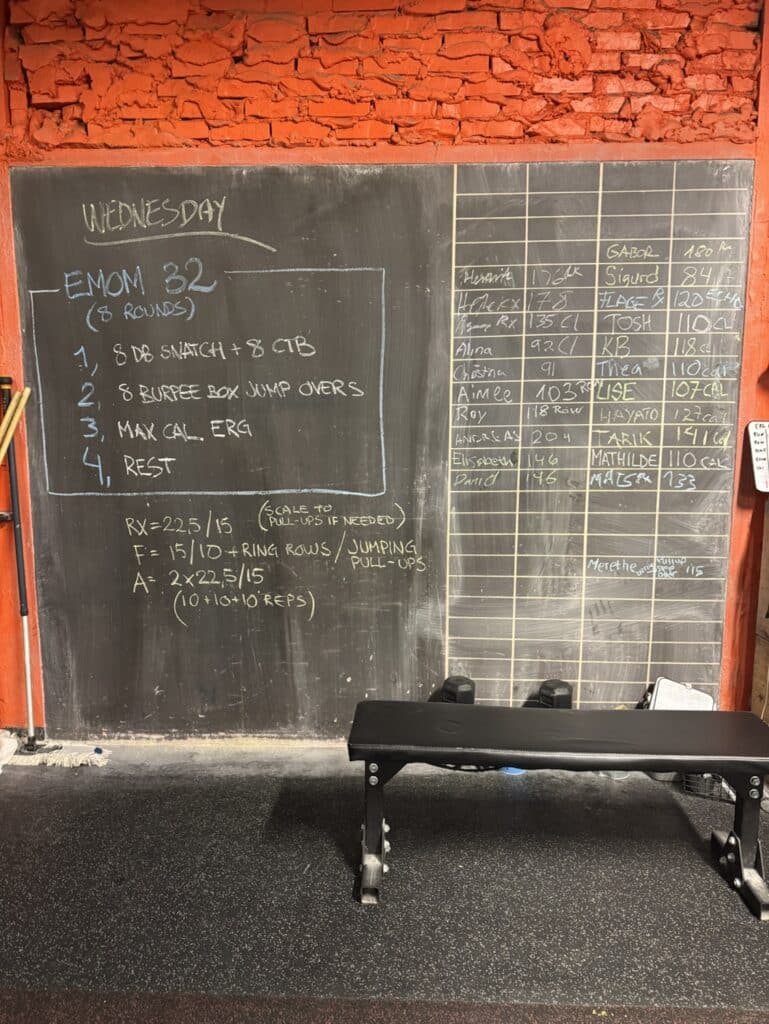 WEDNESDAY
EMOM 32
(8 ROUNDS)
1, 8 DB SNATCH + 8 CTB
2, 8 BURPEE BOX JUMP OVERS
3, MAX CAL ERG
4, REST
RX = 22,5/15 (SCALE TO PULL-UPS IF NEEDED)
F = 15/10 + RING ROWS / JUMPING PULL-UPS
A = 2x22,5/15
(10+10+10 REPS)
GABOR 180
Sigurd 84
178 120
RX 135 Cl TOSH 110 CAL
Alina 92 Cl KB 118 cal
91 Thea 110 cal
Aimée 103 ROW LISE 107 CAL
Roy 118 ROW HAYATO 127 cal
ANDREAS 204 TARIK 141 Cal
Elisabeth 146 MATHILDE 110 CAL
David 146 133
Merethe 115